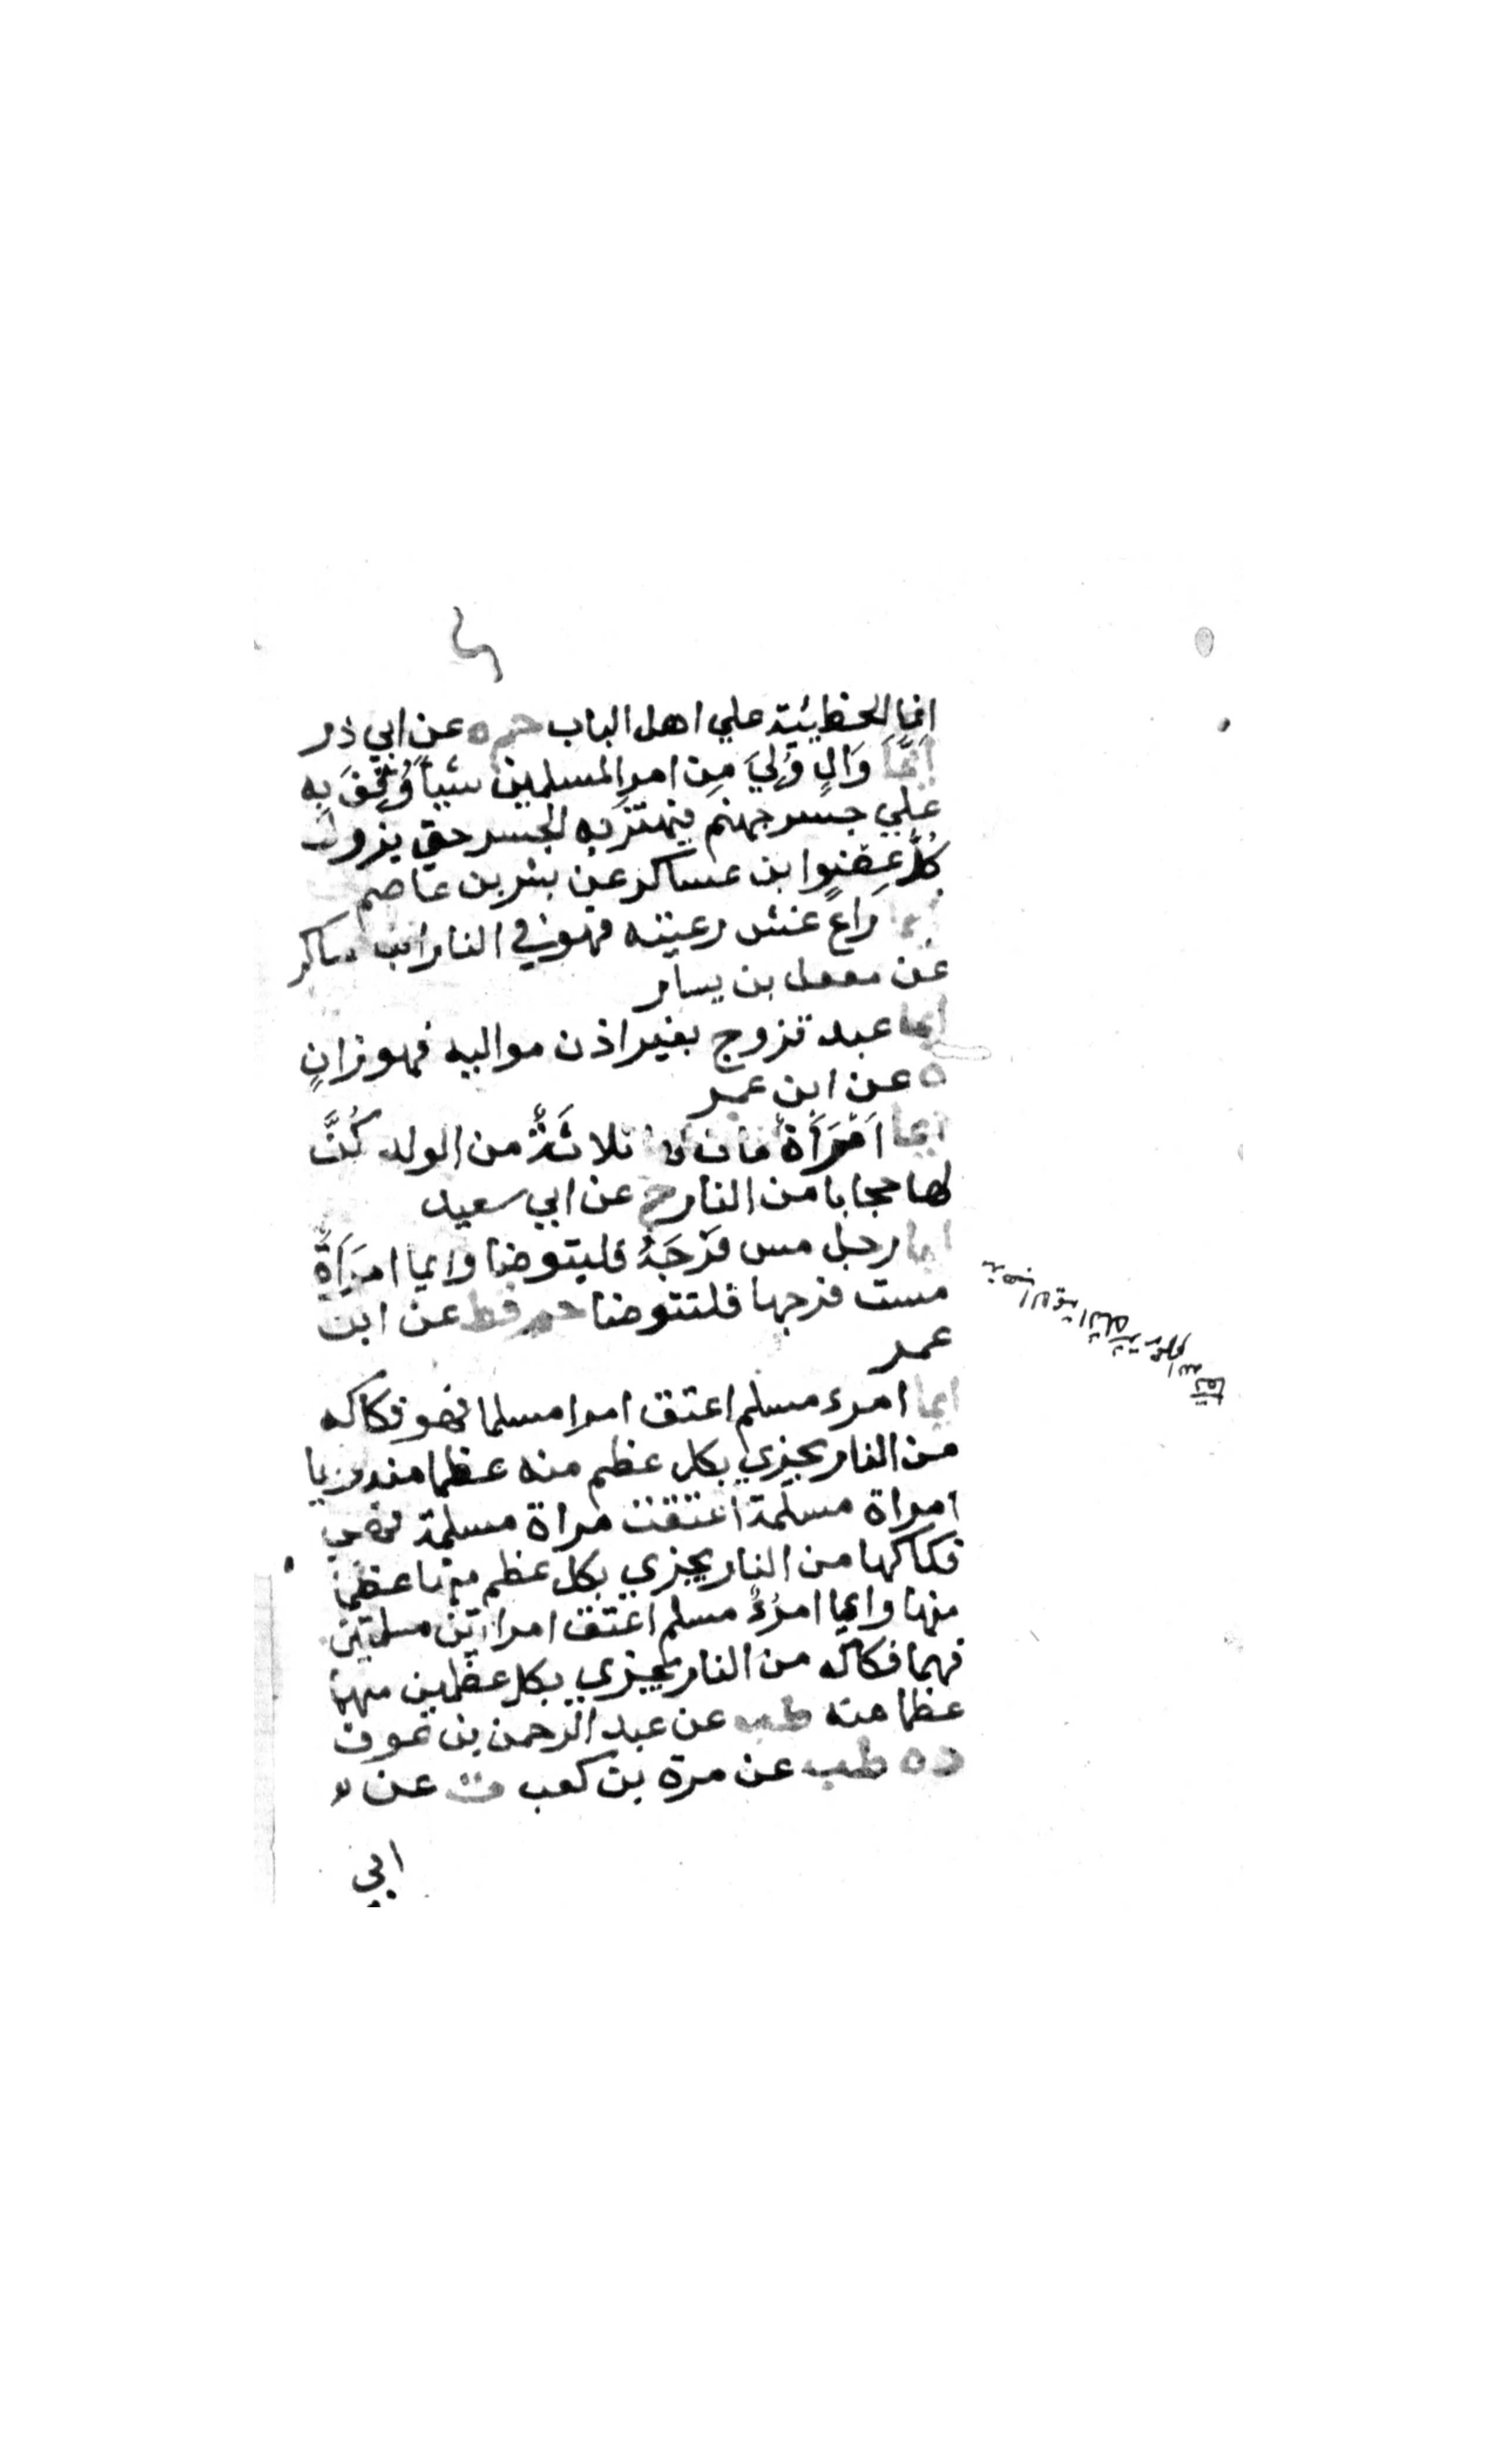 انما الخطيئة علي اهل الباب حم ه عن ابي ذر
اَيُّمَا وَالٍ وُلِيَ مِن امر المسلمين شيأً وُقِّفَ بِه
علي جسر جهنم فيهتز به الجسر حتي يزول
كلُّ عضوٍ ابن عساكر عن بشر بن عاصم
ايما رَاعٍ غش رعيته فهو في النار ابن عساكر
عن معقل بن يسار
ايما عبد تزوج بغير اذن مواليه فهو زانٍ
ه عن ابن عمر
ايما امْرَأَة مات لها ثلاثَةٌ من الولد كُنَّ
لها حجابا من النار خ عن ابي سعيد
ايما رجل مس فَرْجَهُ فليتوضا وايما امرَأَةً
مست فرجها فلتتوضا حم قط عن ابن
عمر
ايما امرء مسلم اعتق امرا مسلما فهو فكاكه
من النار يجزي بكل عظم منه عظما منه وايما
امراة مسلمة اعتقت مراة مسلمة فهي
فكاكها من النار يجزي بكل عظم منها عظما
منها وايما امرُءٌ مسلم اعتق امراتين مسلمتين
فهما فكاكه من النار يجزي بكل عظمين منهما
عظما منه طب عن عبد الرحمن بن عوف
د ه طب عن مرة بن كعب ت عن
ابي